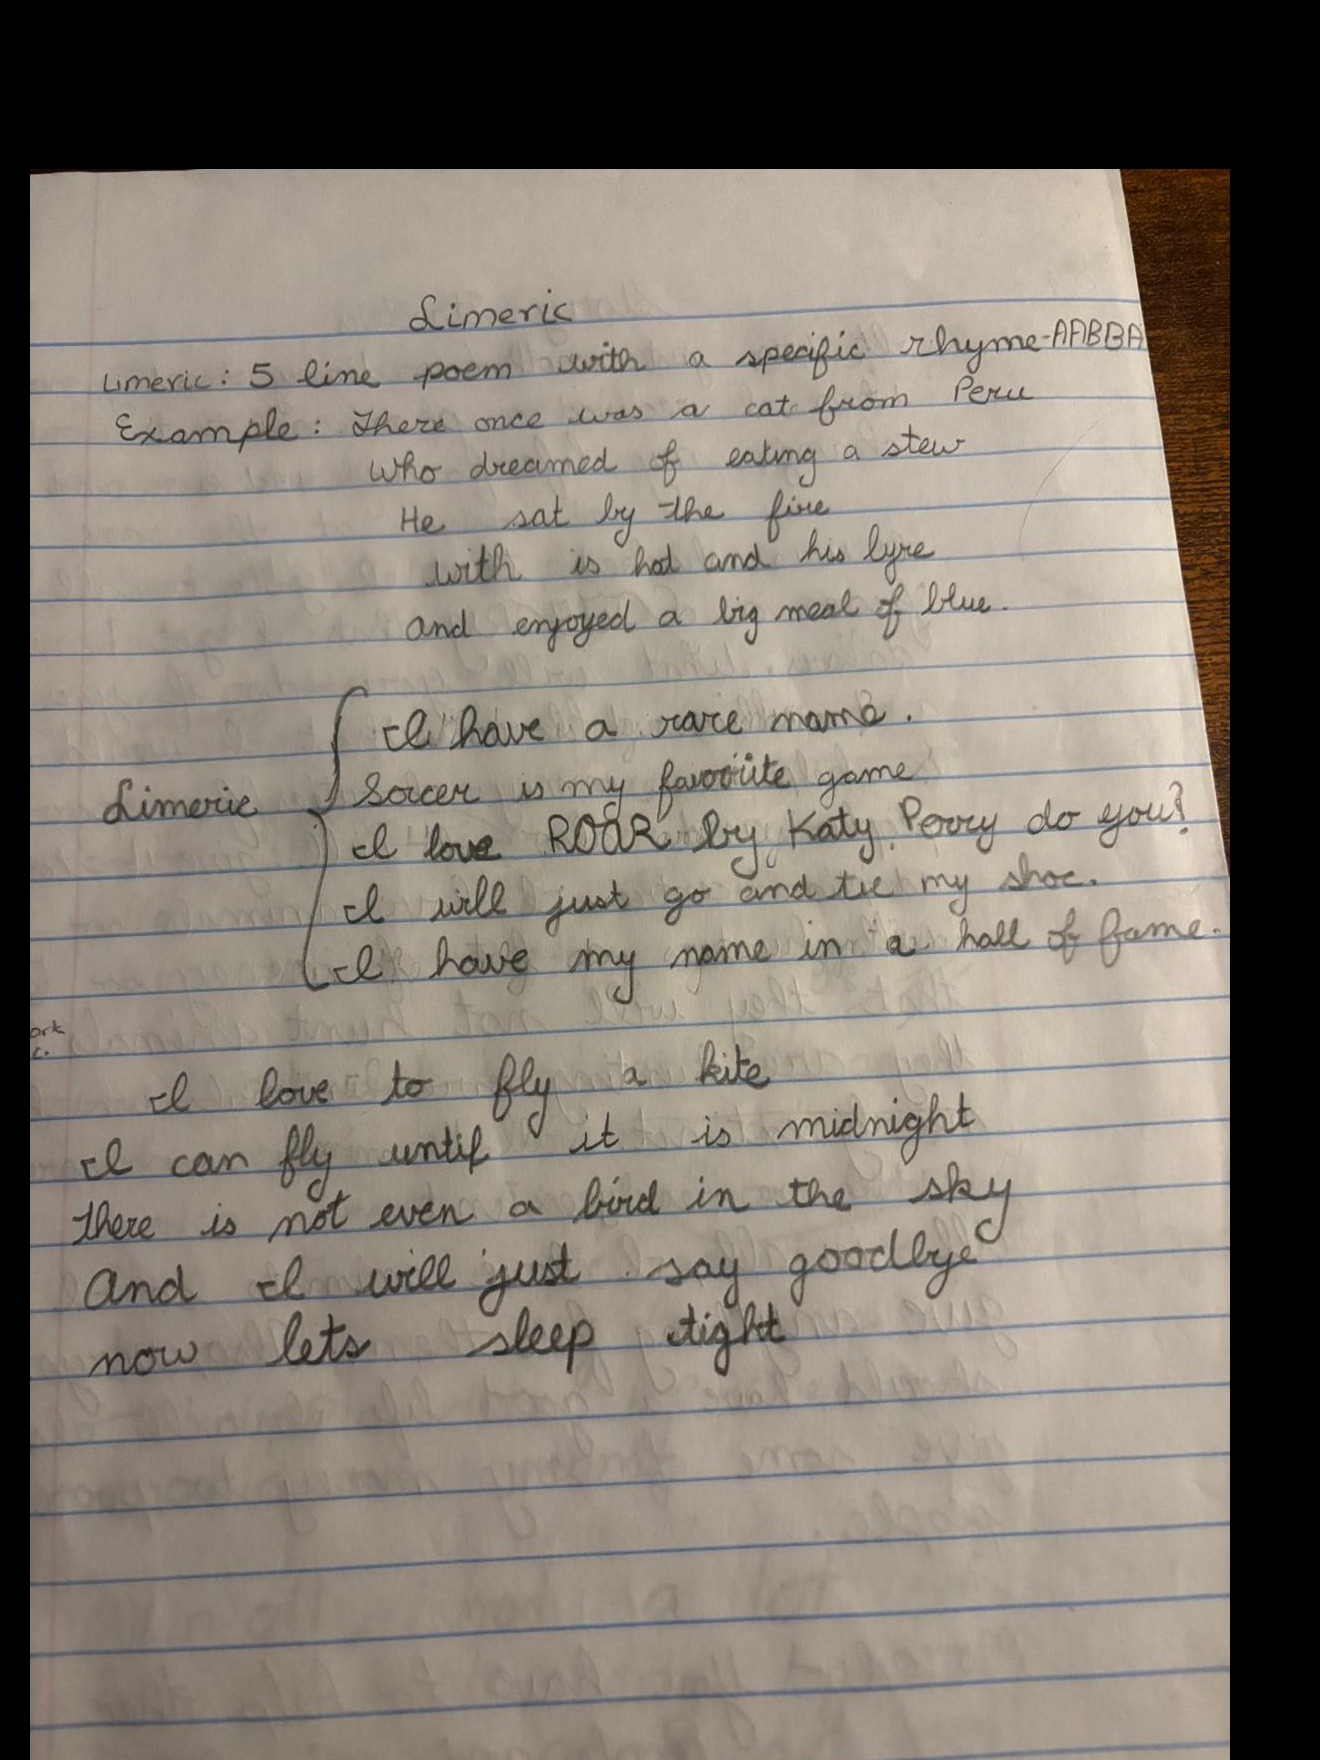 Limeric
Limeric: 5 line poem with a specific rhyme-AABBA
Example: There once was a cat from Peru
who dreamed of eating a stew
He sat by the fire
with is hat and his lyre
and enjoyed a big meal of blue.
I have a rare name.
Soccer is my favorite game
Limeric
I love ROAR by Katy Perry do you?
I will just go and tie my shoe.
I have my name in a hall of fame.
I love to fly a kite
I can fly until it is midnight
There is not even a bird in the sky
And I will just say goodbye
now lets sleep tight